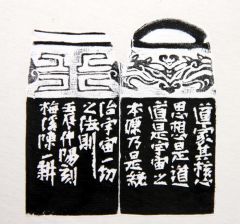 道家其核心
思想是道
道是宇宙之
本源乃是統
治宇宙一切
之法則
梅溪陳一耕